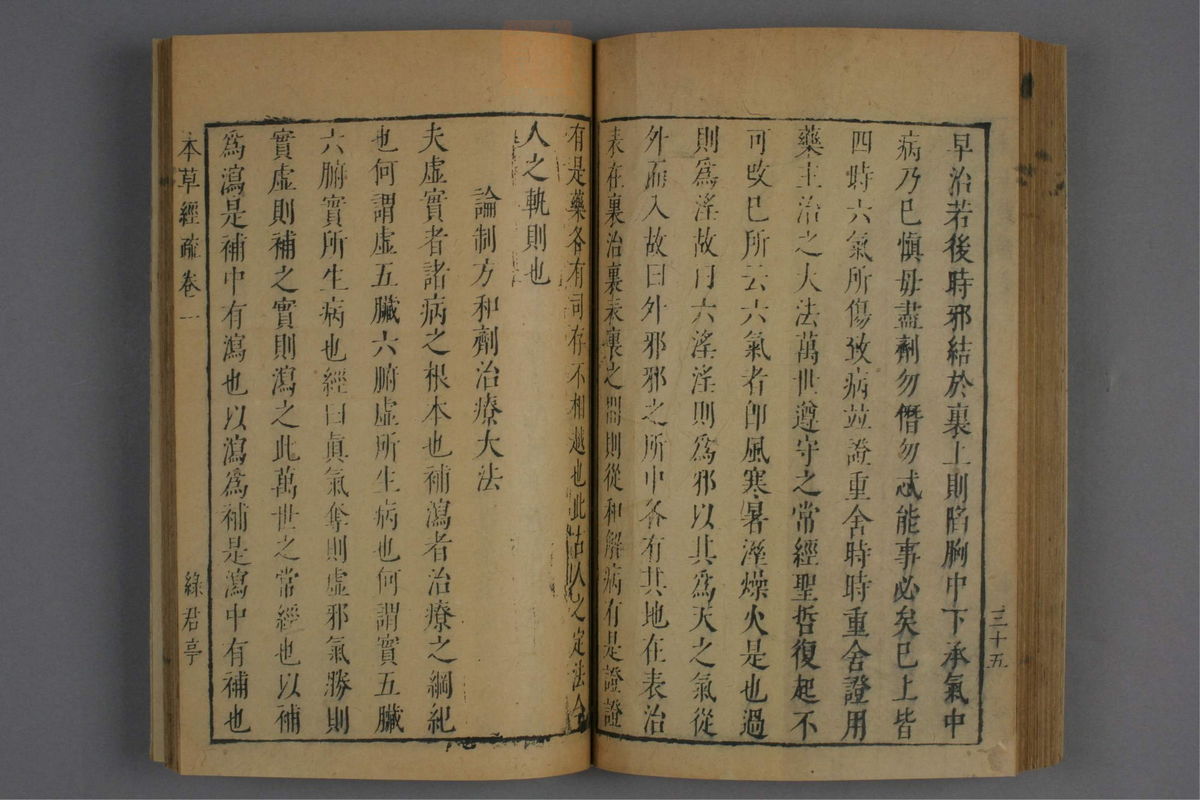 早治若後時邪結於裏上則陷胸中下承氣中
病乃巳愼毋盡劑勿僭勿忒能事必矣巳上皆
四時六氣所傷致病並證重舍時時重舍證用
藥主治之大法萬世遵守之常經聖哲復起不
可改巳所云六氣者卽風寒暑溼燥火是也過
則爲淫故曰六淫淫則爲邪以其爲天之氣從
外而入故曰外邪邪之所中各有其地在表治
表在裏治裏表裏之間則從和解病有是證證
三十五
有是藥各有司存不相越也此古人之定法今
人之軌則也
論制方和劑治療大法
夫虛實者諸病之根本也補瀉者治療之綱紀
也何謂虛五臟六腑虛所生病也何謂實五臟
六腑實所生病也經曰眞氣奪則虛邪氣勝則
實虛則補之實則瀉之此萬世之常經也以補
爲瀉是補中有瀉也以瀉爲補是瀉中有補也
本草經疏 卷一 綠君亭